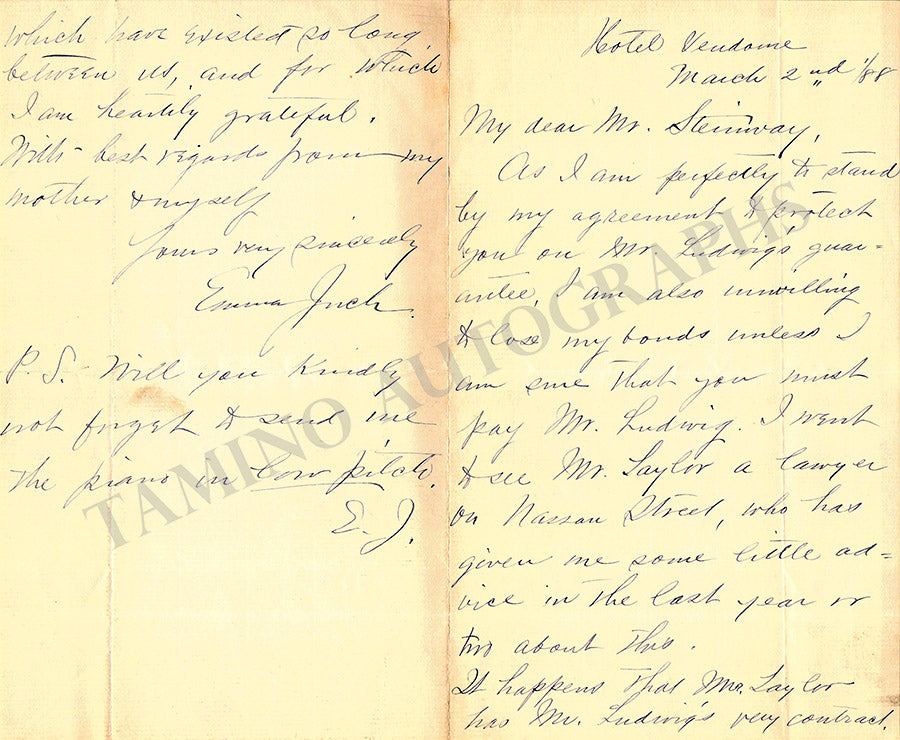 Hotel Vendome
March 2nd /88
My dear Mr. Steinway,
As I am perfectly to stand
by my agreement to protect
you on Mr. Ludwig's guar=
antee, I am also unwilling
to lose my bonds unless I
am sure that you must
pay Mr. Ludwig. I went
to see Mr. Taylor a lawyer
on Nassau Street, who has
given me some little ad=
vice in the last year or
two about this.
It happens that Mr. Taylor
has Mr. Ludwig's very contract,
which have existed so long
between us, and for which
I am heartily grateful.
With best regards from my
mother & myself
Yours very sincerely
Emma Juch.
P.S.- Will you kindly
not forget to send me
the piano in low pitch.
E. J.
TAMINO AUTOGRAPHS